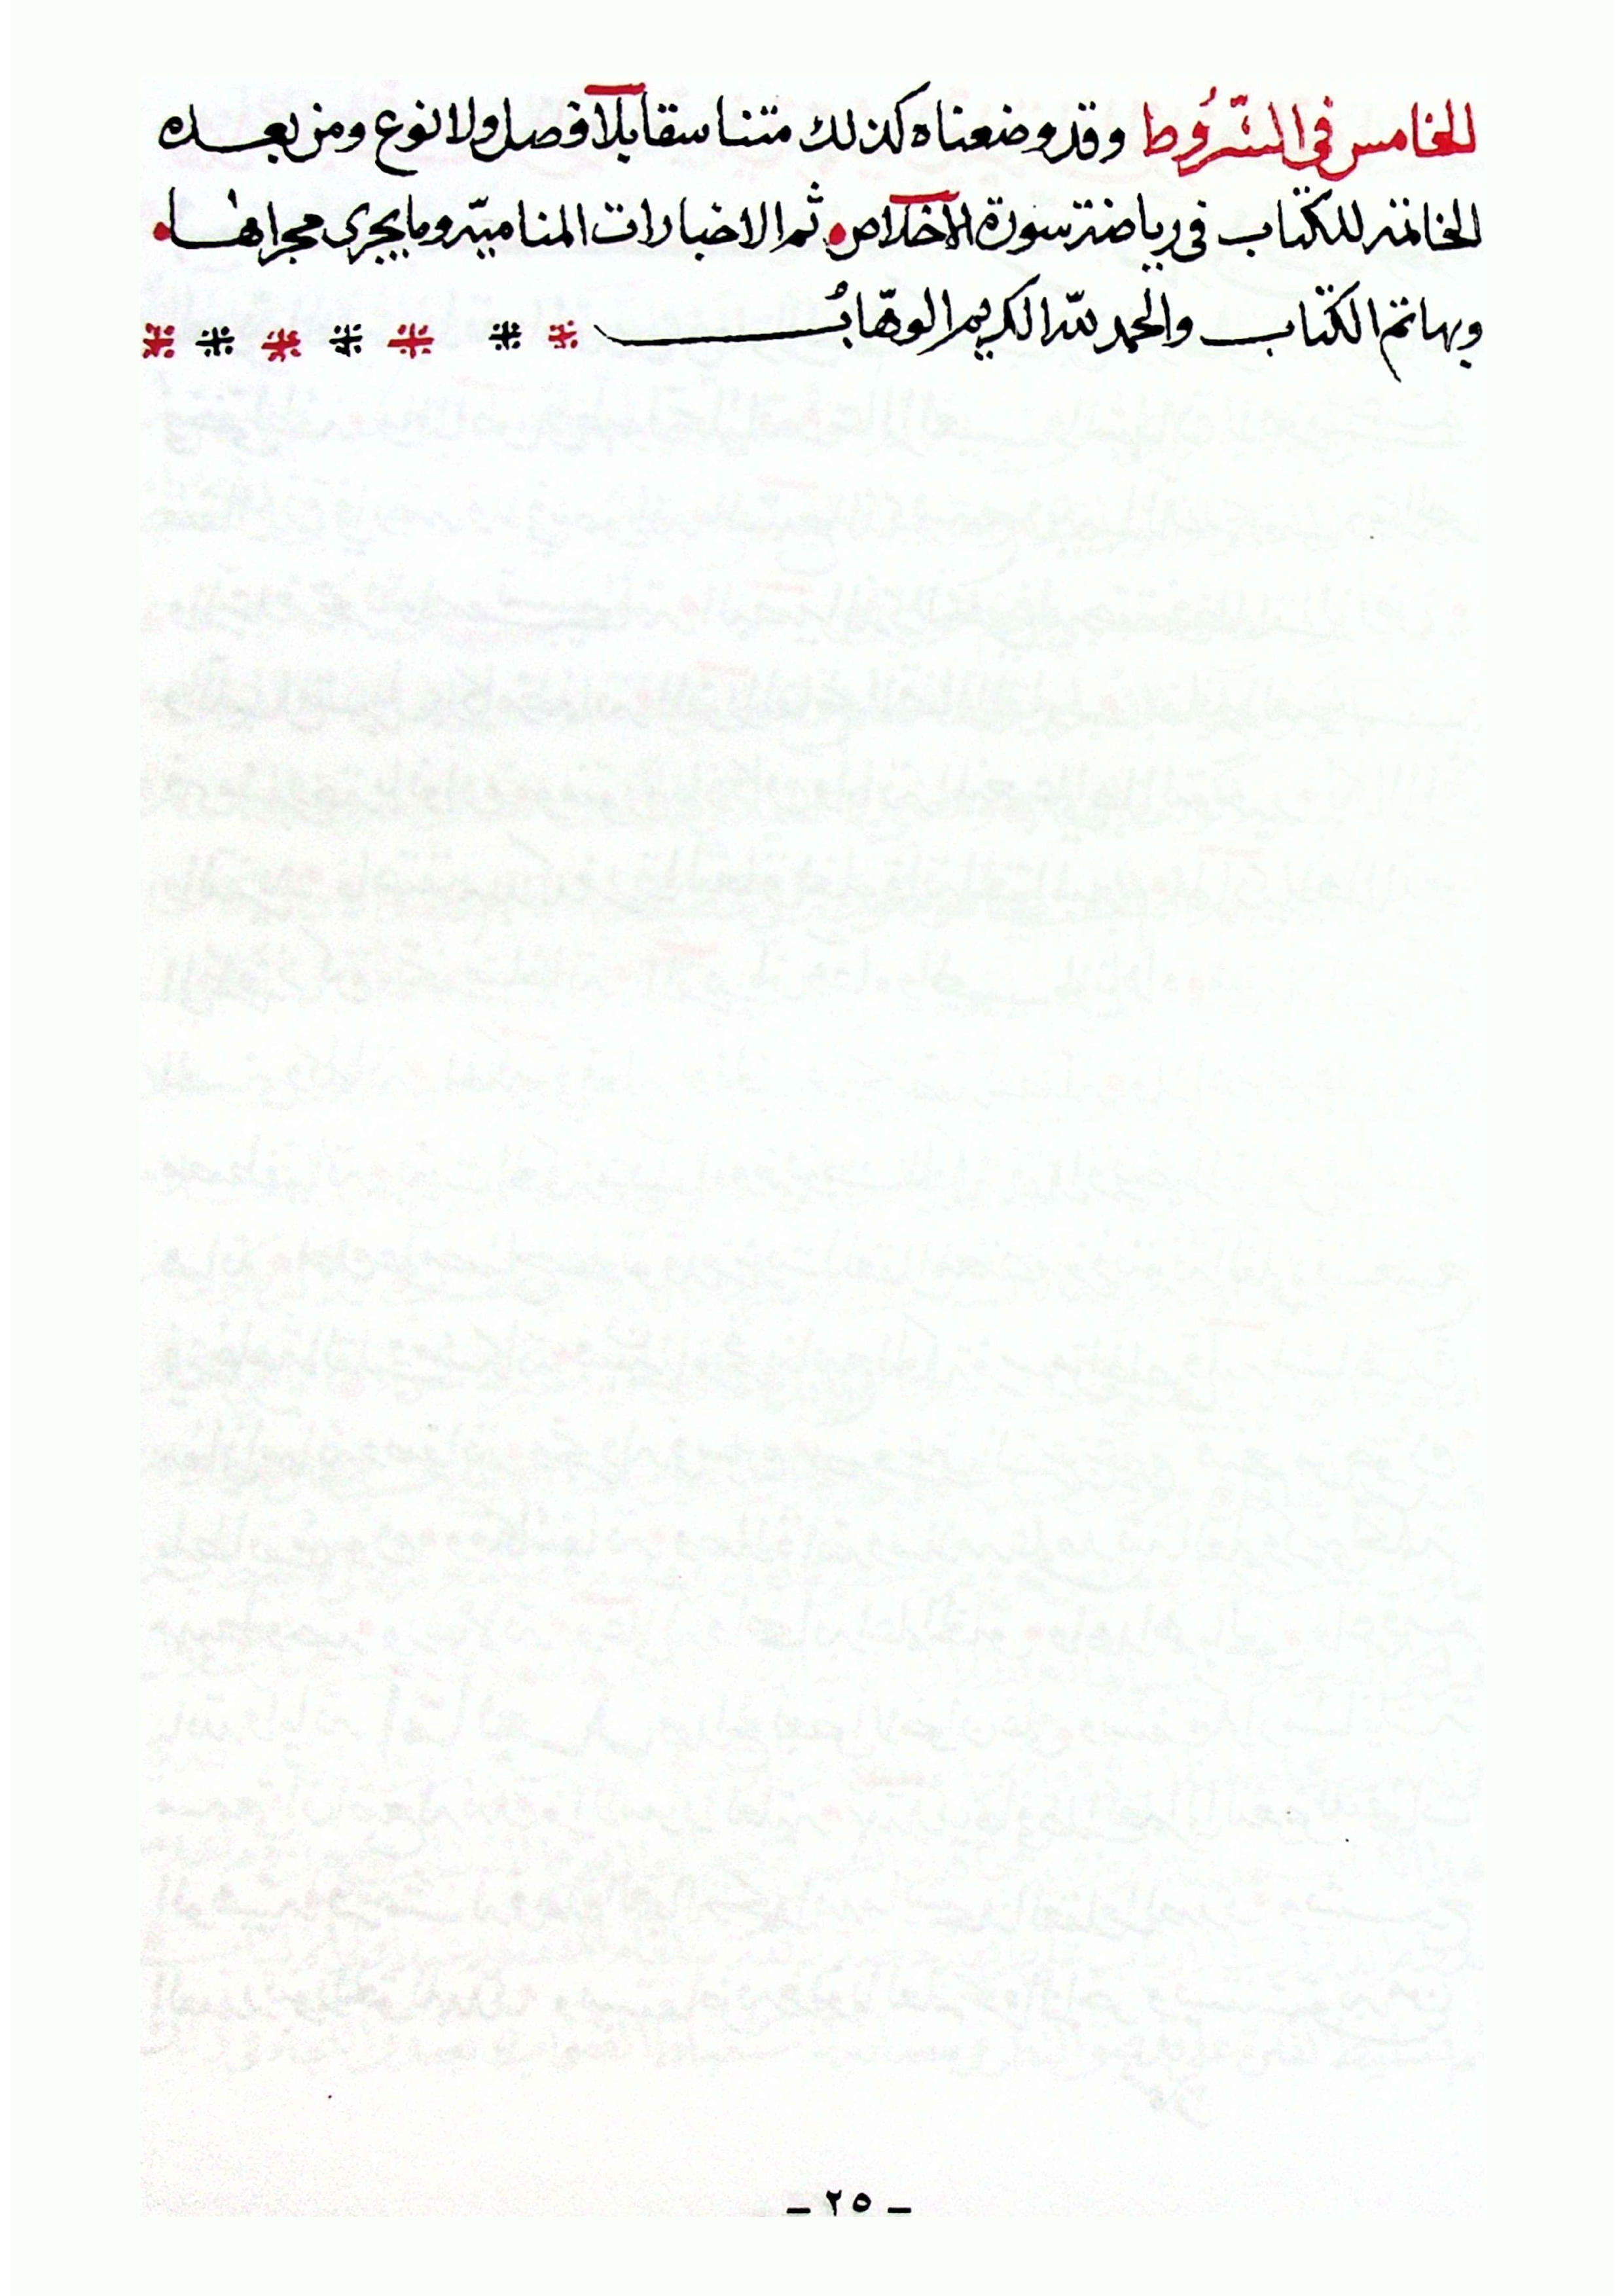 الخامس في الشّرُوط وقد وضعناه كذلك متناسقا بلا فصل ولا نوع ومن بعده
الخاتمة للكتاب في رياضة سورة الاخلاص • ثم الاخبارات المناميّة وما يجري مجراها •
وبها تم الكتاب والحمد للّه الكريم الوهّابُ
– ٢٥ –